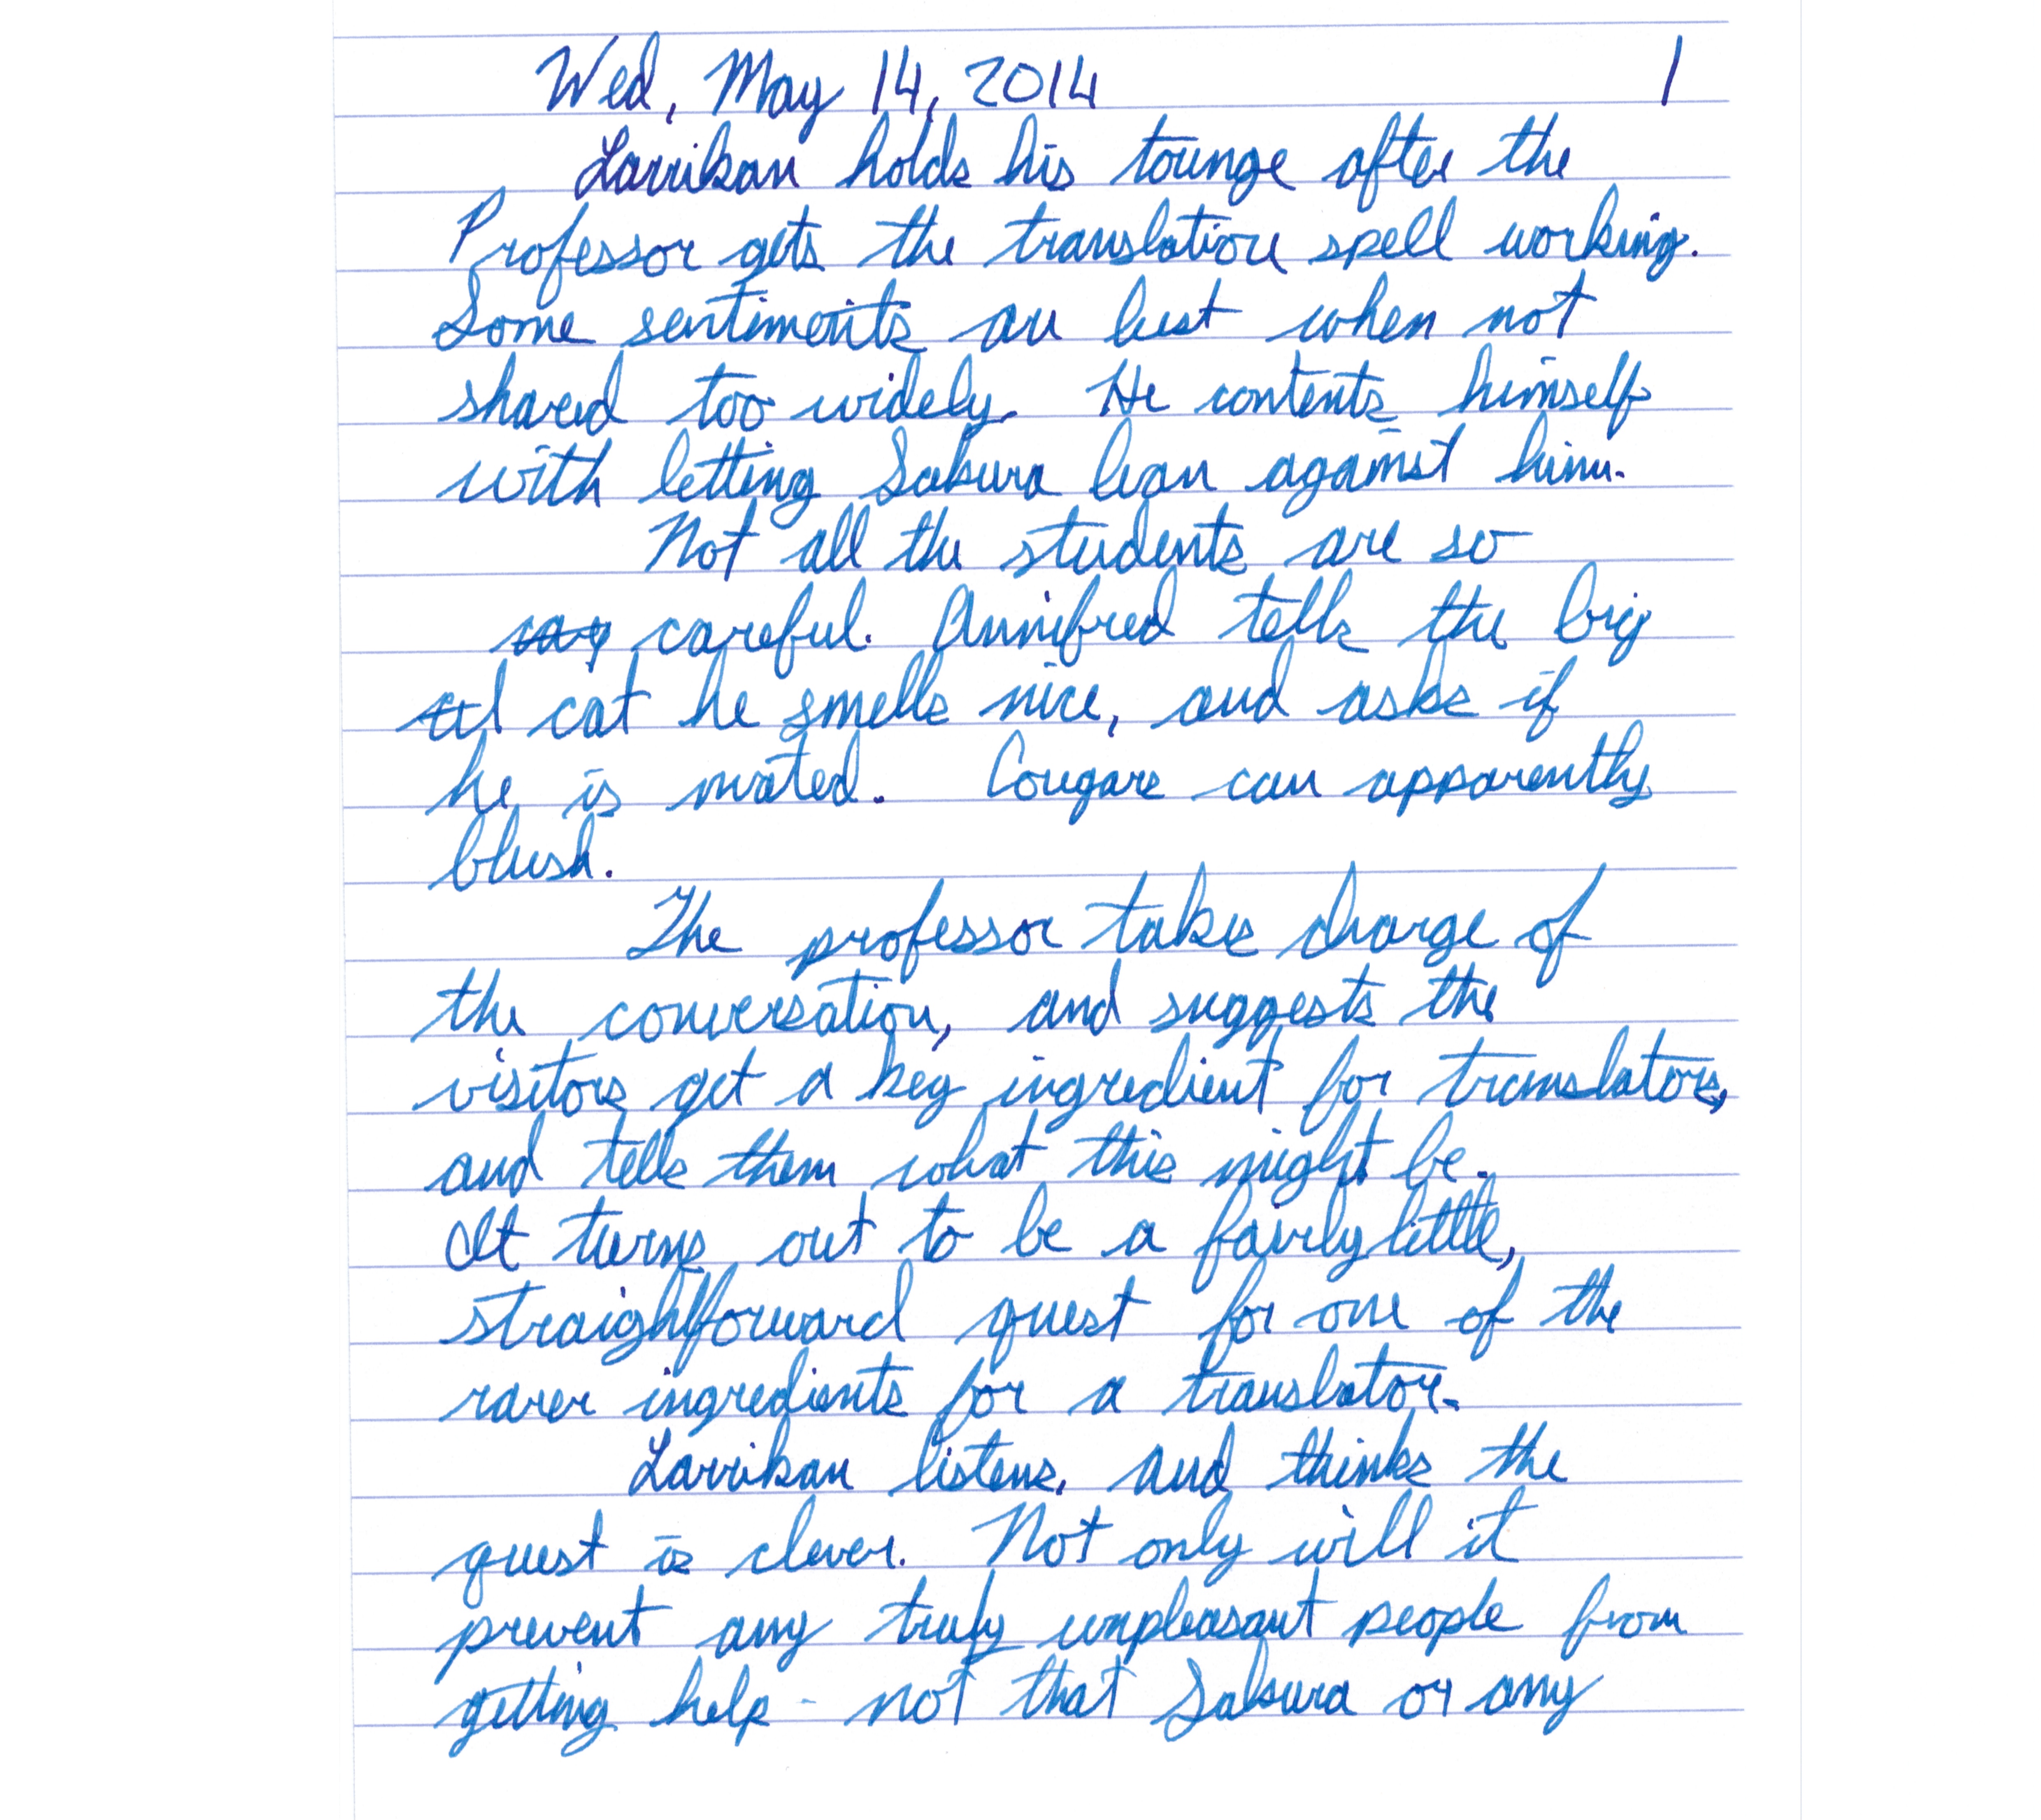 Wed, May 14, 2014 1
Larrikan holds his tounge after the
Professor gets the translation spell working.
Some sentiments are best when not
shared too widely. He contents himself
with letting Sakura lean against him.
Not all the students are so
say careful. Annifred tells the big
cat he smells nice, and asks if
he is mated. Cougars can apparently
blush.
The professor takes charge of
the conversation, and suggests the
visitors get a key ingredient for translators,
and tells them what this might be.
It turns out to be a fairly little,
straighfforward quest for one of the
rarer ingredients for a translator.
Larrikan listens, and thinks the
quest is clever. Not only will it
prevent any truly unpleasant people from
getting help - not that Sakura or any